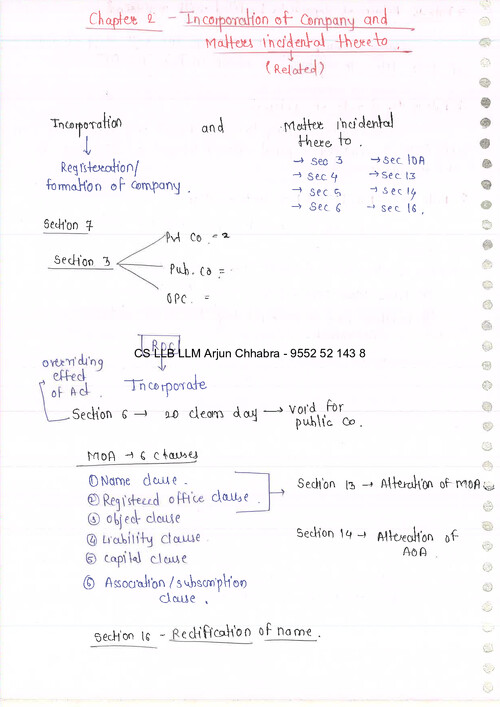 Chapter 2 - Incorporation of Company and
Matters incidental thereto.
(Related)
Incorporation and Matter incidental
thereto.
↓
Registeration/
formation of company.
→ Sec 3 → Sec 10A
→ Sec. 4 → Sec 13
→ Sec 5 → Sec 14
→ Sec 6 → Sec 16.
Section 7
Section 3
Pvt Co. = 2
Pub. Co =
OPC. =
ROC
CS LLB LLM Arjun Chhabra - 9552 52 143 8
↓
Incorporate
overriding
effect
of Act.
Section 6 → 20 clears day → void for
public Co.
MOA → 6 clauses
① Name clause.
② Registered office clause.
③ Object clause
④ Liability clause
⑤ Capital clause
⑥ Association/subscription
clause.
Section 13 → Alteration of MOA
Section 14 → Alteration of
AOA
Section 16 - Rectification of name.